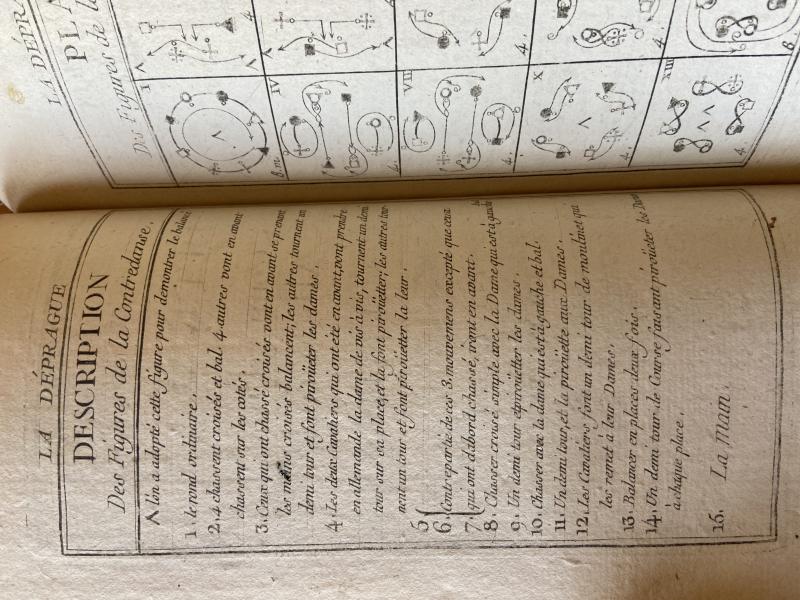 LA DÉPRAGUE
DESCRIPTION
Des Figures de la Contredanse.
Λ l'on a adopté cette figure pour demontrer le balancé
1. le rond ordinaire.
2. 4 chassent croisés et bal. 4 autres vont en avant
chassent sur les cotés.
3. Ceux qui ont chassé croisés vont en avant se prenant
les mains croisés balancent; les autres tournent un
demi tour et font piroüeter les dames.
4. Les deux Cavaliers qui ont été en avant, vont prendre
en allemande la dame de vis à vis, tournent un demi
tour sur sa place, et la font piroüetter; les autres tour-
nent un tour et font piroüetter la leur.
5
6. Contre partie de ces 3. mouvemens excepté que ceux
7. qui ont d'abord chassé, vont en avant.
8. Chasser croisé simple avec la Dame qui est à gauche
9. Un demi tour et piroüetter les dames.
10. Chasser avec la dame qui est à gauche et bal.
11. Un demi tour, et la piroüette aux Dames.
12. Les Cavaliers font un demi tour de moulinet qui
les remet à leur Dames.
13. Balancer en places deux fois.
14. Un demi tour de Course faisant piroüeter les Dames
à chaque place.
15. La Main.
LA DÉPR
PLA
Des Figures de la
I
8. m.
4.
IV
4.
4.
VIII
4.
4.
X
4.
4.
XIII
4.
8.